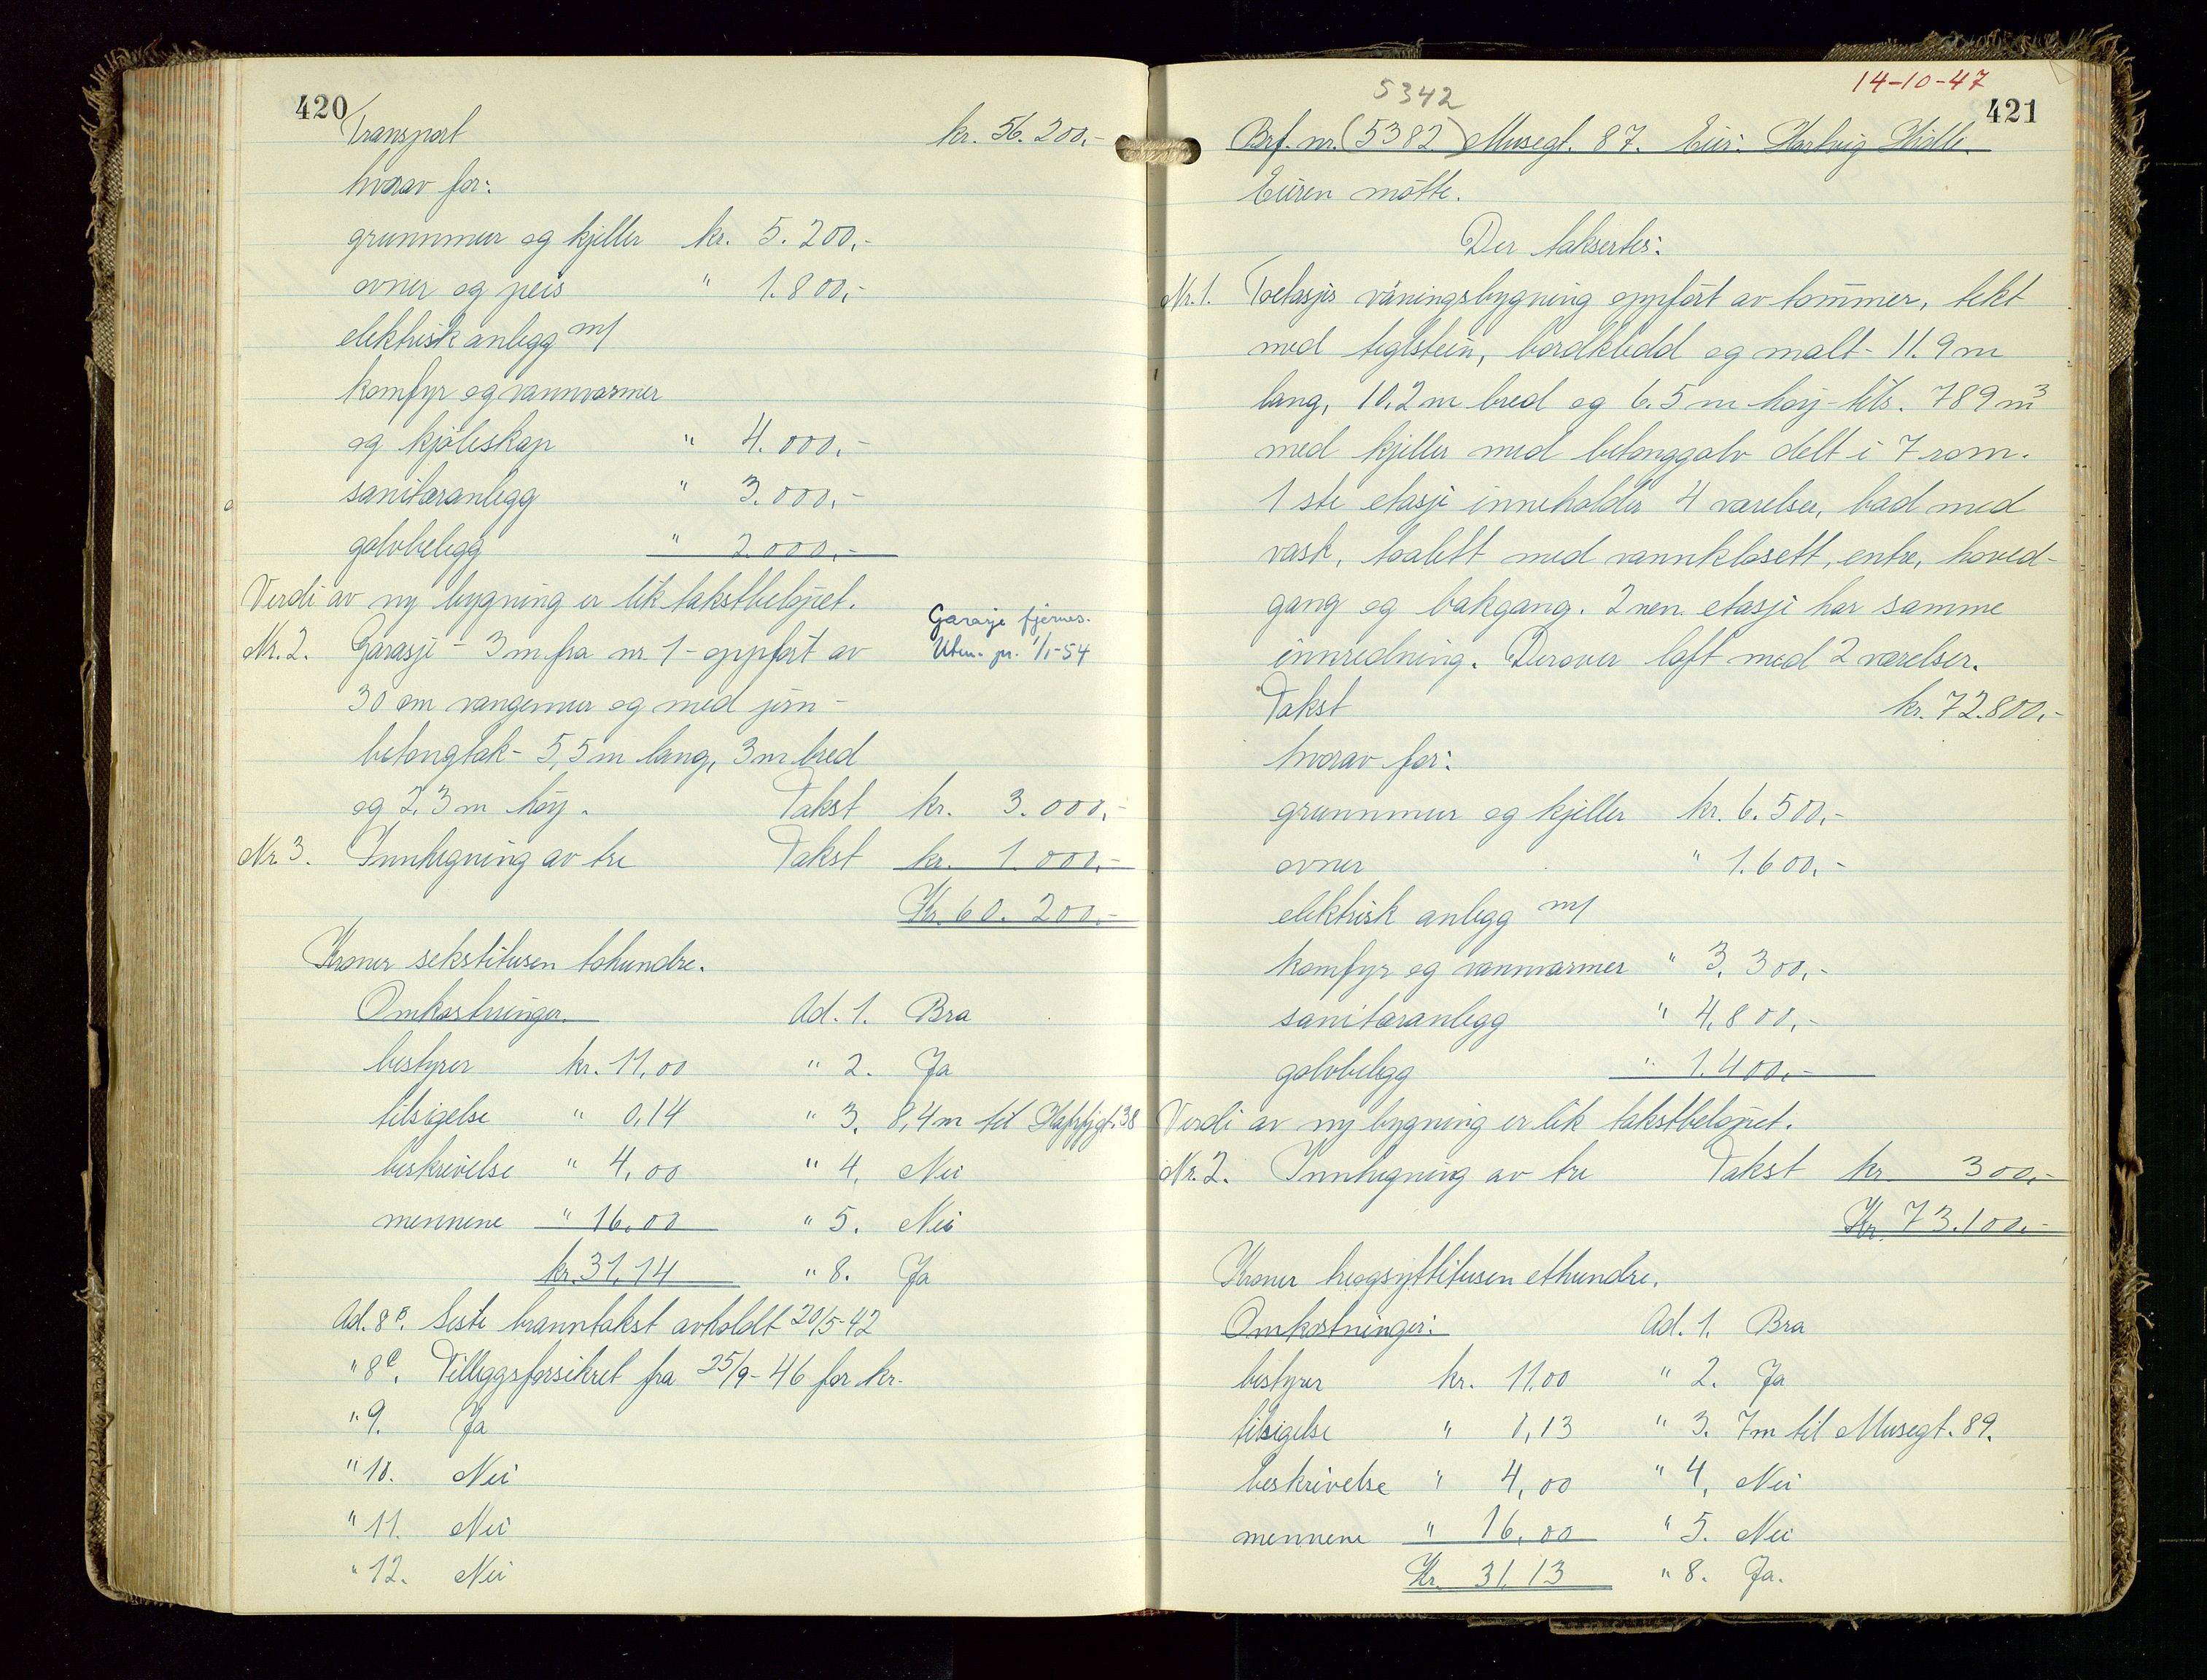 420
Transport kr. 56.200,-
hvorav for:
grunnmur og kjeller kr. 5.200,-
ovner og peis " 1.800,-
elektrisk anlegg m/
komfyr og vannvarmer
og kjøleskap " 4.000,-
sanitæranlegg " 3.000,-
golvbelegg " 2.000,-
Verdi av ny bygning er lik takstbeløpet.
Garasje fjernes.
Utm. pr. 1/1-54
Nr. 2. Garasje - 3 m fra nr. 1 - oppført av
30 cm vangemur og med jern-
betongtak - 5,5 m lang, 3 m bred
og 2,3 m høy. Takst kr. 3.000,-
Nr. 3. Innhegning av tre Takst kr. 1.000,-
Kr. 60.200,-
Kroner sekstitusen tohundre.
Omkostninger. Ad. 1. Bra
bestyrer kr. 11,00 " 2. Ja
tilsigelse " 0,14 " 3. 8,4 m til 38
beskrivelse " 4,00 " 4. Nei
mennene " 16,00 " 5. Nei
kr. 31,14 " 8. Ja
Ad. 8B. Siste branntakst avholdt 20/5-42
" 8C. Tilleggsforsikret fra 25/9-46 for kr.
" 9. Ja
" 10. Nei
" 11. Nei
" 12. Nei
14-10-47
421
5342
Brf. nr. (5382) Musegt. 87. Eier: Hartvig
Eieren møtte.
Der taksertes:
Nr. 1. Toetasjes våningsbygning oppført av tømmer, tekt
med teglstein, bordkledd og malt - 11.9 m
lang, 10.2 m bred og 6.5 m høy - tils. 789 m3
med kjeller med betonggolv delt i 7 rom.
1ste etasje inneholder 4 værelser, bad med
vask, toalett med vannklosett, entre, hoved-
gang og bakgang. 2nen etasje har samme
innredning. Derover loft med 2 værelser.
Takst kr. 72.800,-
hvorav for:
grunnmur og kjeller kr. 6.500,-
ovner " 1.600,-
elektrisk anlegg m/
komfyr og vannvarmer " 3.300,-
sanitæranlegg " 4.800,-
golvbelegg " 1.400,-
Verdi av ny bygning er lik takstbeløpet.
Nr. 2. Innhegning av tre Takst kr. 300,-
Kr. 73.100,-
Kroner treogsyttitusen ethundre.
Omkostninger: Ad. 1. Bra
bestyrer kr. 11,00 " 2. Ja
tilsigelse " 0,13 " 3. 7 m til Musegt. 89.
beskrivelse " 4,00 " 4. Nei
mennene " 16,00 " 5. Nei
Kr. 31,13 " 8. Ja.